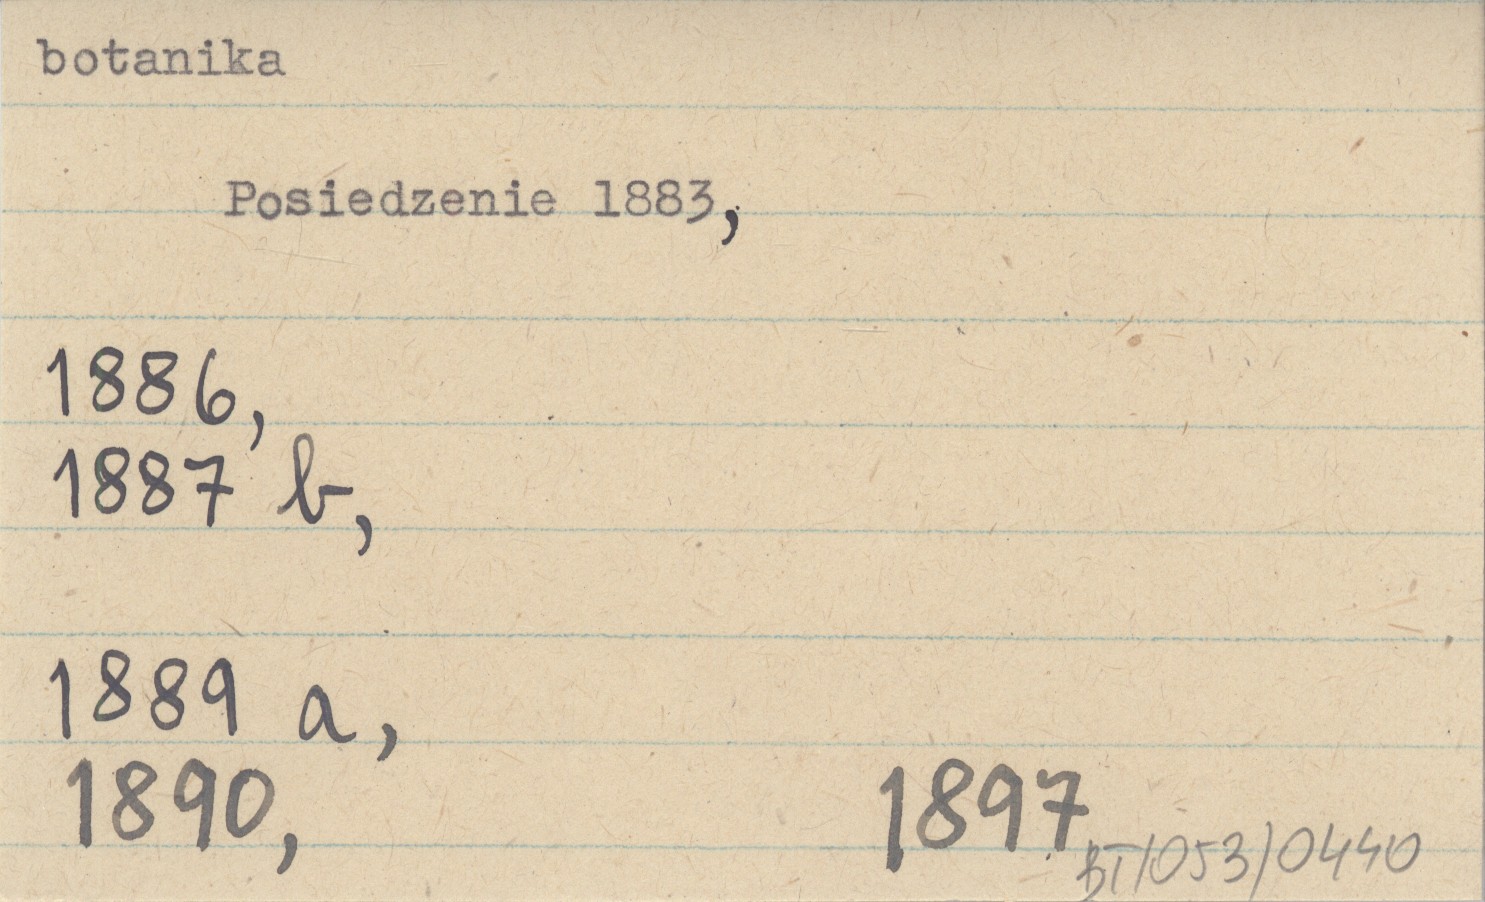 botanika
Posiedzenie 1883,
1886,
1887 b,
1889 a,
1890, 1897
BT/053/0440